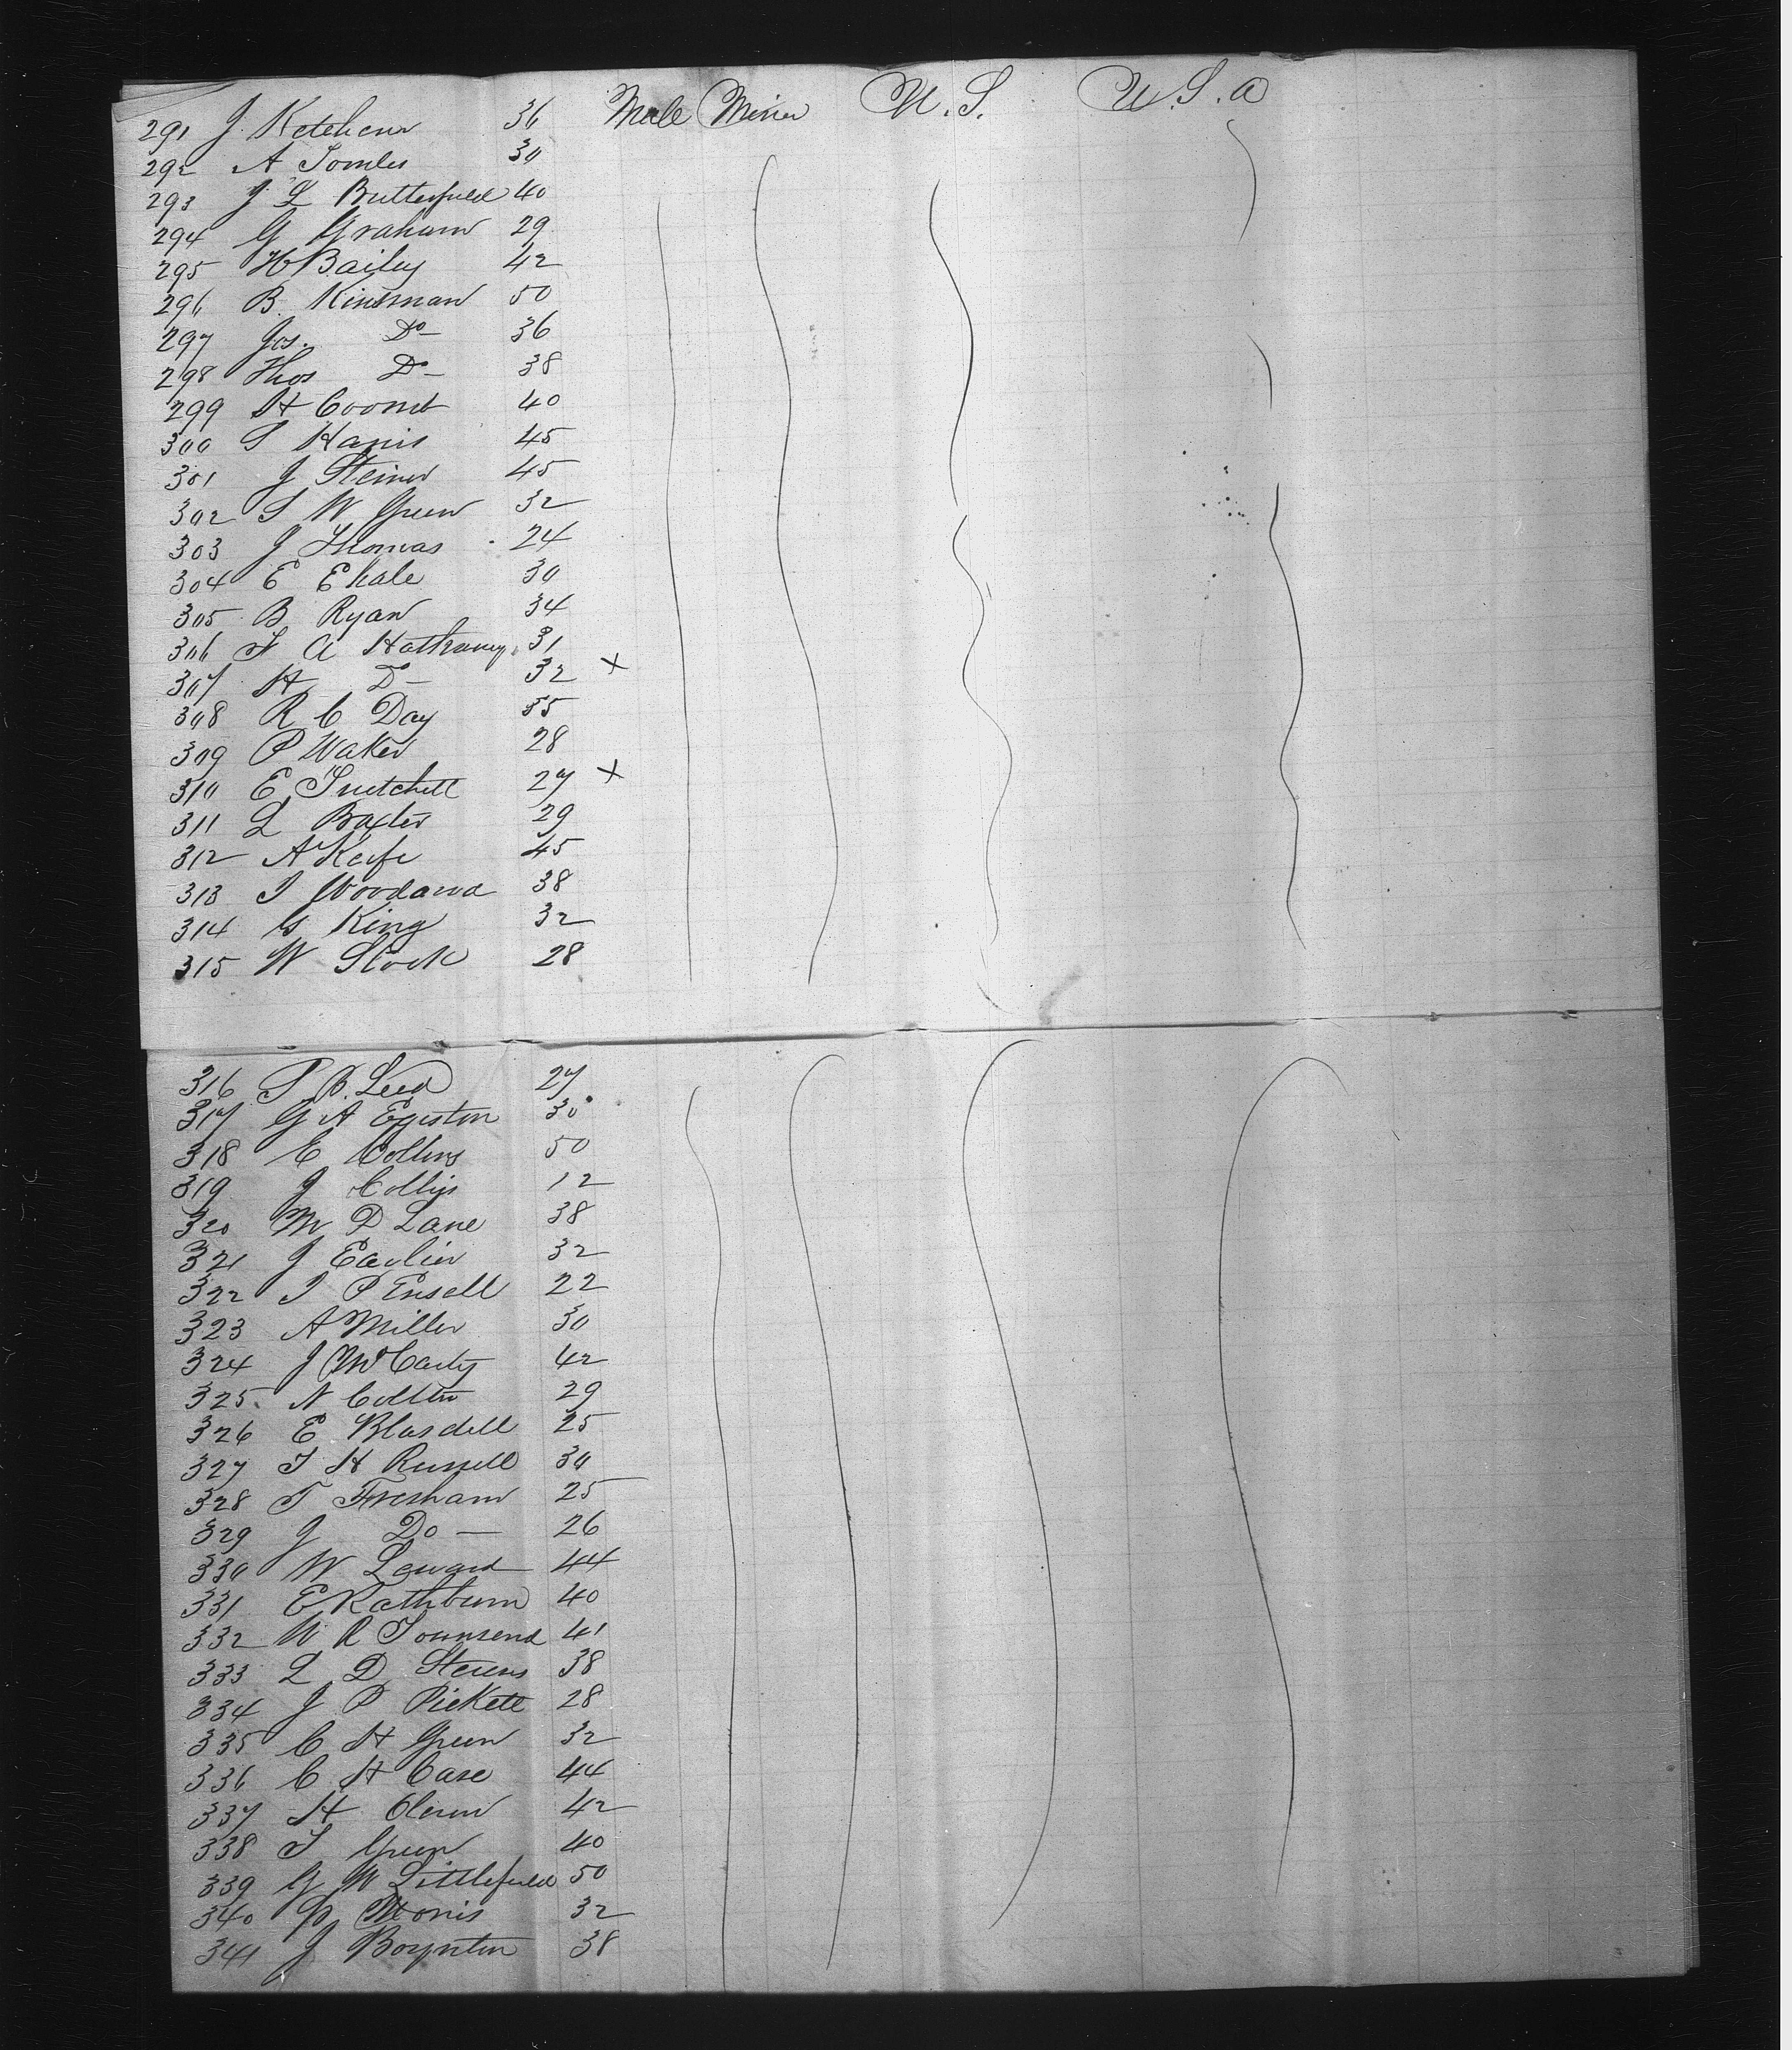 291 J. Ketchum 36 Male Miner U.S. U.S.A
292 A Tombs 30
293 J L Butterfield 40
294 G Graham 29
295 H Bailey 42
296 B Kinsman 50
297 Jas. Do 36
298 Thos Do 38
299 H 40
300 S Harris 45
301 J Steiner 45
302 S W Green 32
303 J Thomas 24
304 E Ehale 30
305 B Ryan 34
306 F A Hathaway 31
307 H Do 32 X
308 R C Day 55
309 P Waker 28
310 E 27 X
311 L Baxter 29
312 A Keefe 45
313 J Woodard 38
314 G King 32
315 W Slock 28
316 S. B. Leed 27
317 G A Egiston 30
318 E Collins 50
319 J Collins 12
320 M D Lane 38
321 J 32
322 J P Ensell 22
323 A Miller 30
324 J McCarty 42
325 N Colten 29
326 E Blasdell 25
327 J H Russell 30
328 T Fresham 25
329 J Do 26
330 W 44
331 E Rathburn 40
332 W R Townsend 41
333 L D Stevens 38
334 J P Pickett 28
335 C H Green 32
336 C H Case 44
337 H 42
338 J Green 40
339 G W Littlefield 50
340 P Morris 32
341 J Boynton 38